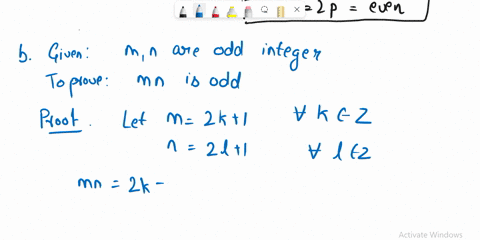 = 2p = even
b. Given: m,n are odd integer
To prove: mn is odd
Proof. Let m = 2k+1 ∀ k ∈ Z
n = 2l+1 ∀ l ∈ Z
mn = 2k -
Activate Windows